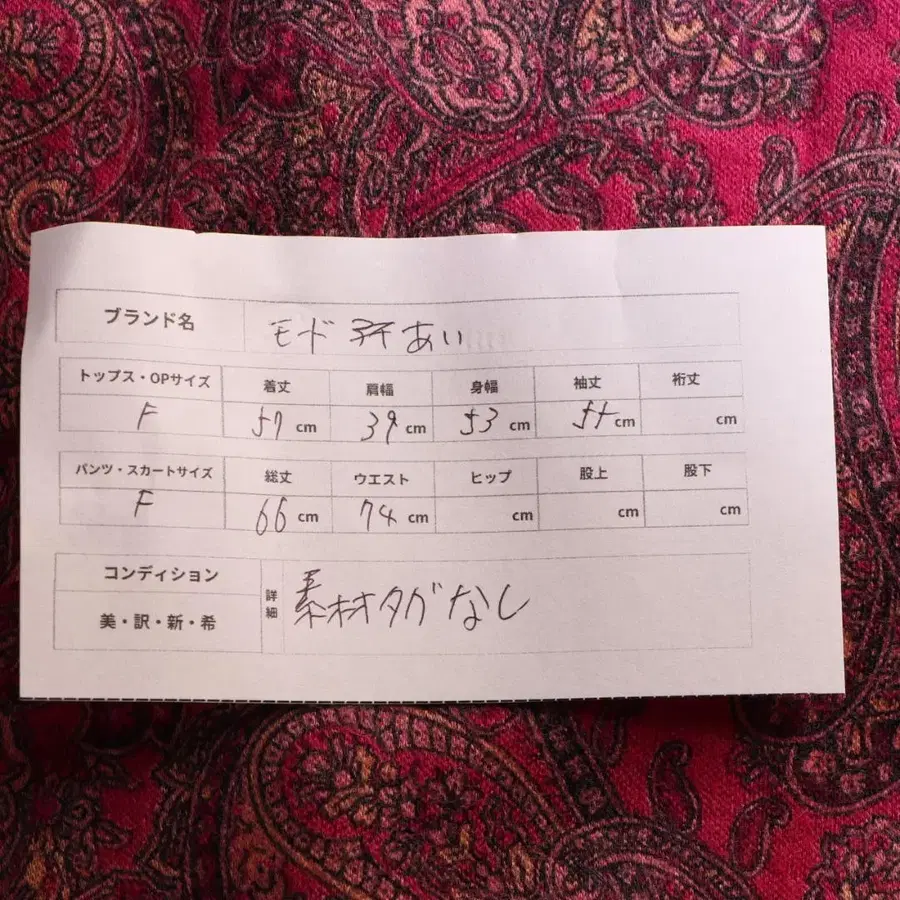 ブランド名 モード あい
トップス・OPサイズ 着丈 肩幅 身幅 袖丈 裄丈
F 57 cm 39 cm 53 cm cm cm
パンツ・スカートサイズ 総丈 ウエスト ヒップ 股上 股下
F 66 cm 74 cm cm cm cm
コンディション 詳細 素材タグなし
美・訳・新・希